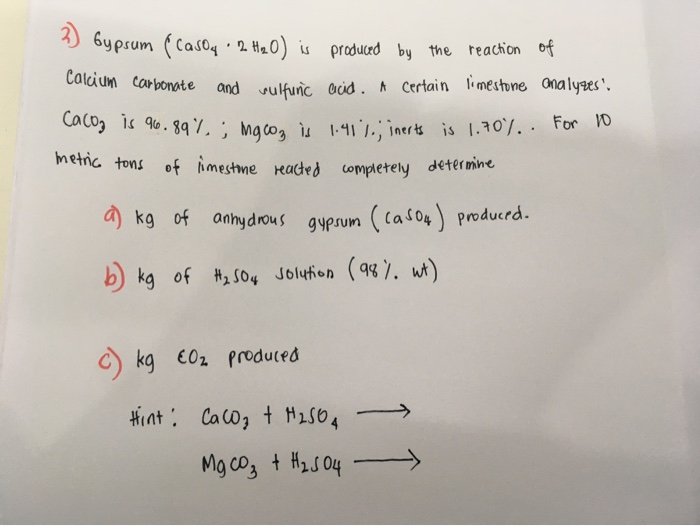 2) Gypsum (CaSO4 · 2 H2O) is produced by the reaction of
Calcium Carbonate and sulfuric acid. A certain limestone analyzes:
CaCO3 is 96.89%; MgCO3 is 1.41%; inerts is 1.70%. For 10
metric tons of limestone reacted completely determine
a) kg of anhydrous gypsum (CaSO4) produced.
b) kg of H2SO4 solution (98% wt)
c) kg CO2 produced
Hint: CaCO3 + H2SO4 →
MgCO3 + H2SO4 →